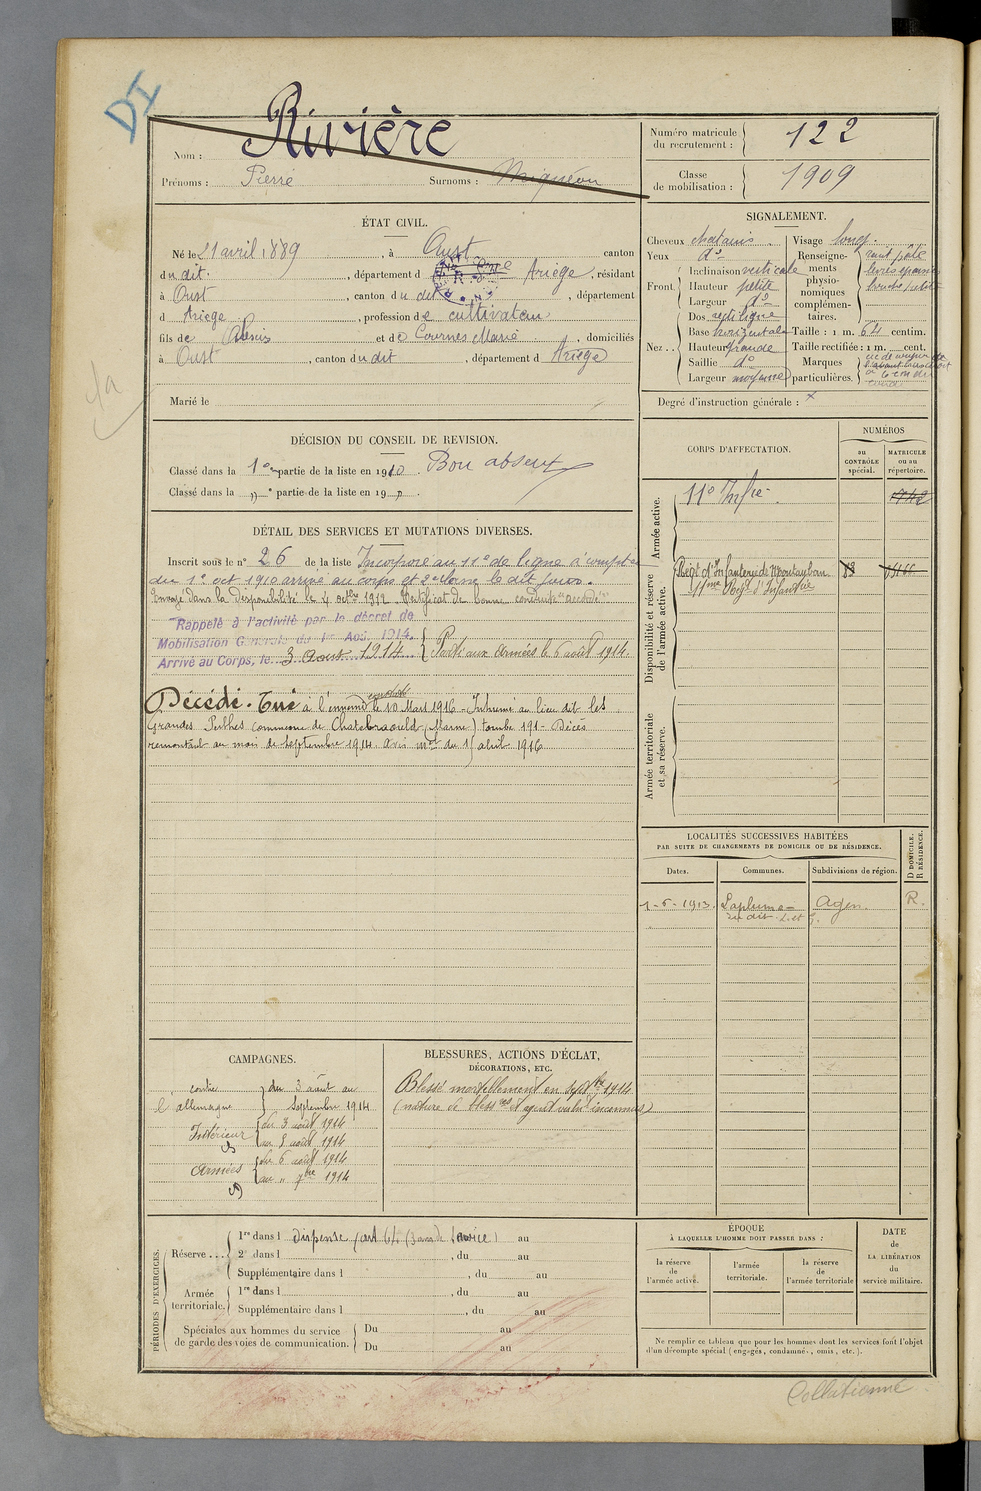 DI
Rivière
Nom :
Prénoms : Pierre Surnoms : Miqueou
Numéro matricule du recrutement : 122
Classe de mobilisation : 1909
ÉTAT CIVIL.
Né le 21 avril 1889, à Oust canton
du dit, département d Ariège, résidant
à Oust, canton du dit, département
d Ariège, profession de cultivateur
fils de et de Cournes Marie, domiciliés
à Oust, canton du dit, département d Ariège
Marié le
SIGNALEMENT.
Cheveux chatains
Yeux do
Front. Inclinaison verticale
Hauteur petite
Largeur do
Nez.. Dos rectiligne
Base horizontale
Hauteur grande
Saillie do
Largeur moyenne
Visage long.
Renseignements physionomiques complémentaires.
Taille : 1 m. 64 centim.
Taille rectifiée : 1 m. cent.
Marques particulières.
Degré d'instruction générale : x
DÉCISION DU CONSEIL DE REVISION.
Classé dans la 1e partie de la liste en 1910. Bon absent
Classé dans la " e partie de la liste en 19 "
DÉTAIL DES SERVICES ET MUTATIONS DIVERSES.
Inscrit sous le n° 26 de la liste Incorporé au 11e de ligne à compter
du 1er oct 1910 arrivé au corps et 2e classe le dit jour.
Envoyé dans la disponibilité le 4 octbre 1912 Certificat de bonne conduite accordé
Rappelé à l'activité par le décret de
Mobilisation Générale du 1er Août 1914.
Arrivé au Corps, le 3 Aout 1914. Parti aux Armées le 6 août 1914.
Décédé. Tué à l'ennemi le 10 Mars 1916 - Inhumé au lieu dit les
Grandes Perthes commune de Chatelraould (Marne) tombe 191 - Décès
remontant au mois de septembre 1914. avis mel du 15 abril 1916
CORPS D'AFFECTATION.
NUMÉROS
au CONTRÔLE spécial.
MATRICULE ou au répertoire.
Armée active.
11e Infie
Disponibilité et réserve de l'armée active.
Régt d'Infanterie de Montauban
11me Régt d'Infanterie
Armée territoriale et sa réserve.
LOCALITÉS SUCCESSIVES HABITÉES
PAR SUITE DE CHANGEMENTS DE DOMICILE OU DE RÉSIDENCE.
Dates. Communes. Subdivisions de région. D DOMICILE. R RÉSIDENCE.
1-6-1913. Laplume Agen. R.
du dit L. et G.
CAMPAGNES.
contre l'allemagne du 3 août au
Septembre 1914
Intérieur du 3 août 1914
au 5 août 1914
Armées du 6 août 1914
au " 7bre 1914
BLESSURES, ACTIONS D'ÉCLAT,
DÉCORATIONS, ETC.
Blessé mortellement en septbre 1914
(nature de blessres et agent vulnt inconnus)
PÉRIODES D'EXERCICES.
Réserve ... 1re dans l dispense (art 64 (3 ans de service) au
2e dans l , du au
Supplémentaire dans l , du au
Armée territoriale. 1re dans l , du au
Supplémentaire dans l , du au
Spéciales aux hommes du service de garde des voies de communication. Du au
Du au
ÉPOQUE
À LAQUELLE L'HOMME DOIT PASSER DANS :
la réserve de l'armée active.
l'armée territoriale.
la réserve de l'armée territoriale
DATE de LA LIBÉRATION du service militaire.
Ne remplir ce tableau que pour les hommes dont les services font l'objet
d'un décompte spécial (engagés, condamnés, omis, etc.).
Collationné